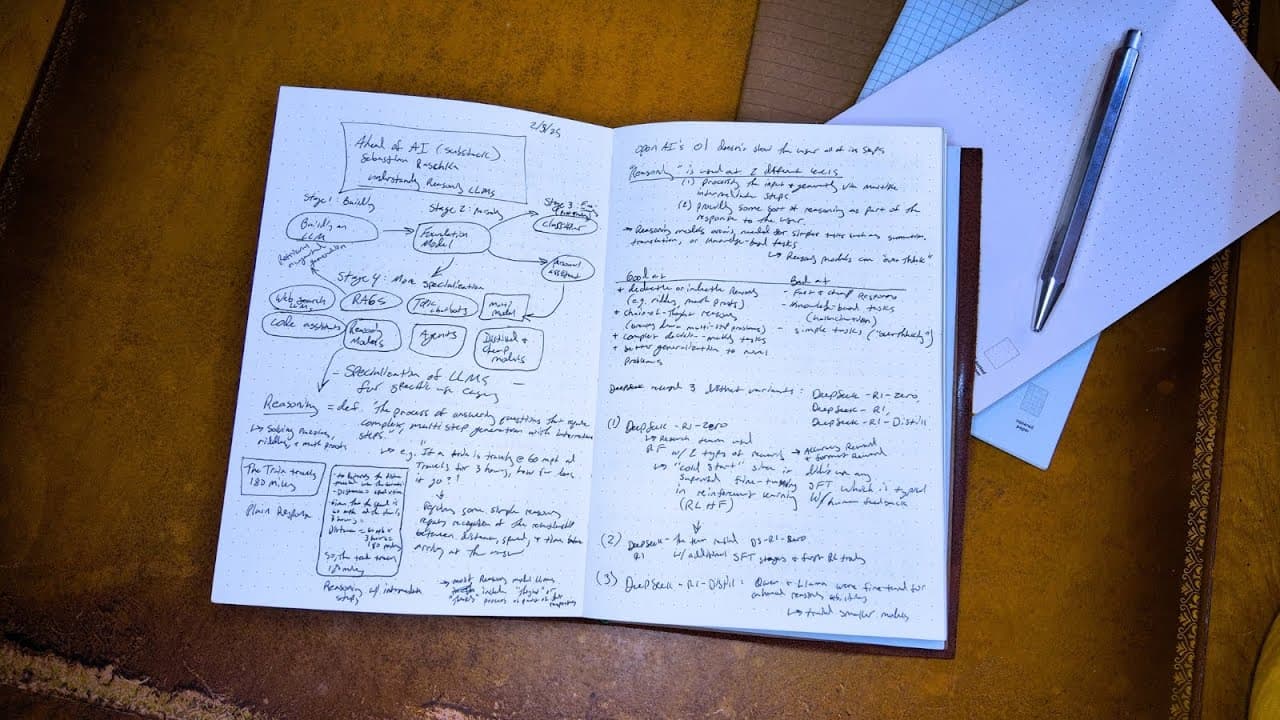 2/3/25
Ahead of AI (substack)
Sebastian Raschka
Understanding Reasoning LLMs
Stage 1: Building
Stage 2: 
Stage 3:
Building an
LLM
Foundation
Model
classifier
assistant
Retrieval
augmented
generation
Stage 4: More Specialization
Web search
RAGs
Topic
chatbots
Multi
modal
code assistants
Reasoning
Models
Agents
Distilled &
models
- Specialization of LLMs -
for specific use cases
Reasoning = def. The process of answering questions that require
complex, multi step generation with intermediate
steps.
↳ Solving puzzles,
riddles, + math proofs
↳ e.g. "If a train is traveling @ 60 mph and
travels for 3 hours, how far does
it go?"
The Train travels
180 miles
Plain Response
distance = 60 mph x
3 hours =
180 miles
So, the train travels
180 miles
some simple reasoning
requires recognition of the relationship
between distance, speed, & time before
arriving at the answer
Reasoning w/ intermediate
steps
↳ most Reasoning model LLMs
include "thought" or
process as part of
OpenAI's O1 doesn't show the user all of its steps
"Reasoning" is used at 2 different levels
(1) processing the input & generating via multiple
intermediate steps
(2) providing some sort of reasoning as part of the
response to the user.
→ Reasoning models for simpler tasks such as summation,
translation, or knowledge-based tasks.
↳ Reasoning models can "over think"
Good at
Bad at
+ deductive or inductive reasoning
(e.g. riddles, math proofs)
+ chain-of-thought reasoning
(breaking down multi-step problems)
+ complex decision-making tasks
+ better generalization to novel
problems
- Fast & cheap responses
- Knowledge-based tasks
(hallucination)
- simple tasks ("overthinking")
DeepSeek 3 different variants: DeepSeek-R1-Zero,
DeepSeek-R1,
DeepSeek-R1-Distill
(1) DeepSeek-R1-Zero
↳ Research team used
w/ 2 types of rewards → Accuracy Reward
+ format Reward
↳ "cold start" since it any
supervised fine-tuning SFT which is typical
in reinforcement learning w/ human feedback
(RLHF)
(2) DeepSeek-R1
- The team DS-R1-Zero
w/ additional SFT stages & further RL training
(3) DeepSeek-R1-Distill: Qwen & Llama were fine-tuned for
enhanced reasoning abilities
↳ smaller models